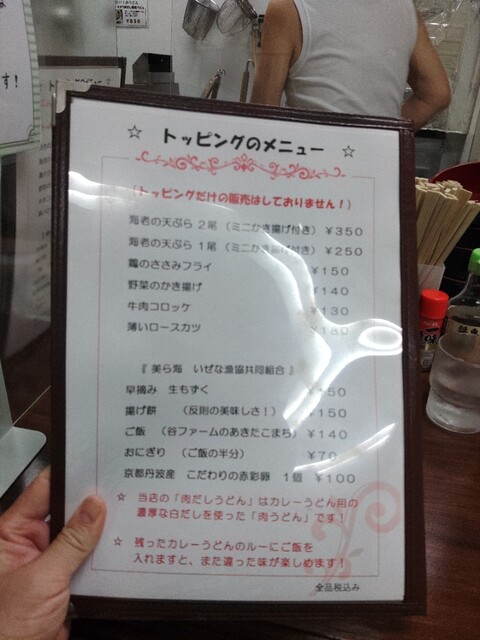 ¥850
す!
☆ トッピングのメニュー ☆
(トッピングだけの販売はしておりません!)
海老の天ぷら 2尾 (ミニかき揚げ付き) ¥350
海老の天ぷら 1尾 (ミニかき揚げ付き) ¥250
鶏のささみフライ ¥150
野菜のかき揚げ ¥140
牛肉コロッケ ¥130
薄いロースカツ ¥180
『 美ら海 いぜな漁協共同組合 』
早摘み 生もずく ¥150
揚げ餅 (反則の美味しさ!) ¥150
ご飯 (谷ファームのあきたこまち) ¥140
おにぎり (ご飯の半分) ¥70
京都丹波産 こだわりの赤彩卵 1個 ¥100
☆ 当店の「肉だしうどん」はカレーうどん用の
濃厚な白だしを使った「肉うどん」です!
☆ 残ったカレーうどんのルーにご飯を
入れますと、また違った味が楽しめます!
全品税込み